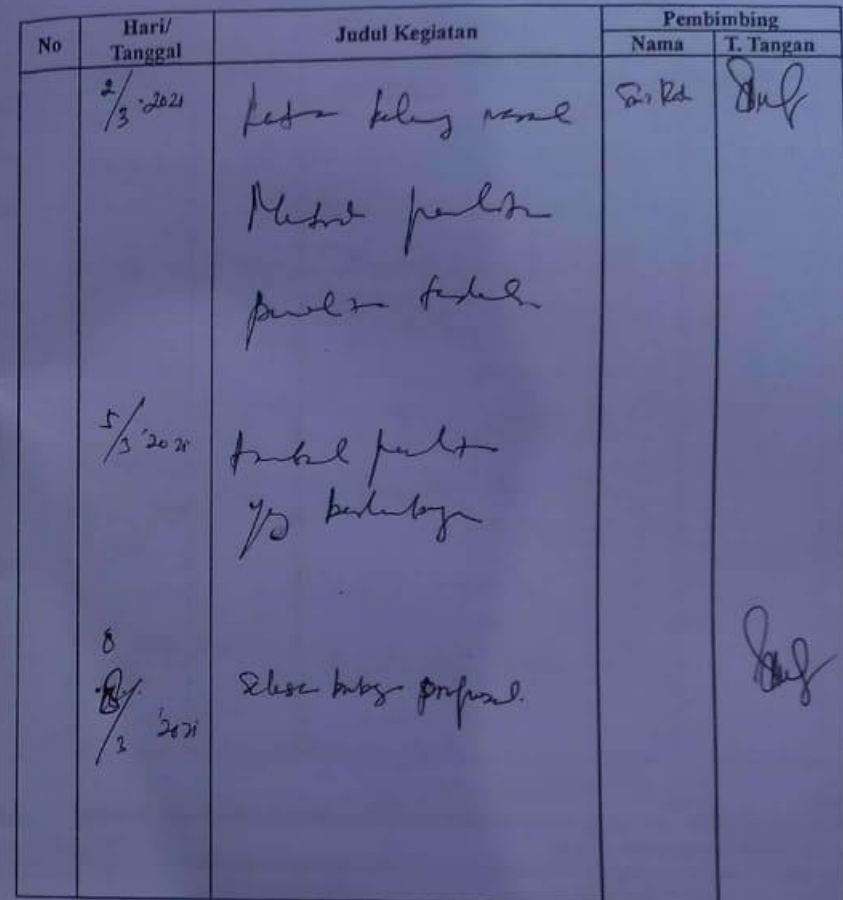 No
Hari/
Tanggal
Judul Kegiatan
Pembimbing
Nama
T. Tangan
2/3 - 2021
Latar belakang masalah
Metode penelitian
penelitian terdahulu
5/3 '2021
penelitian
yg
8
/3 '2021
Selesai proposal.